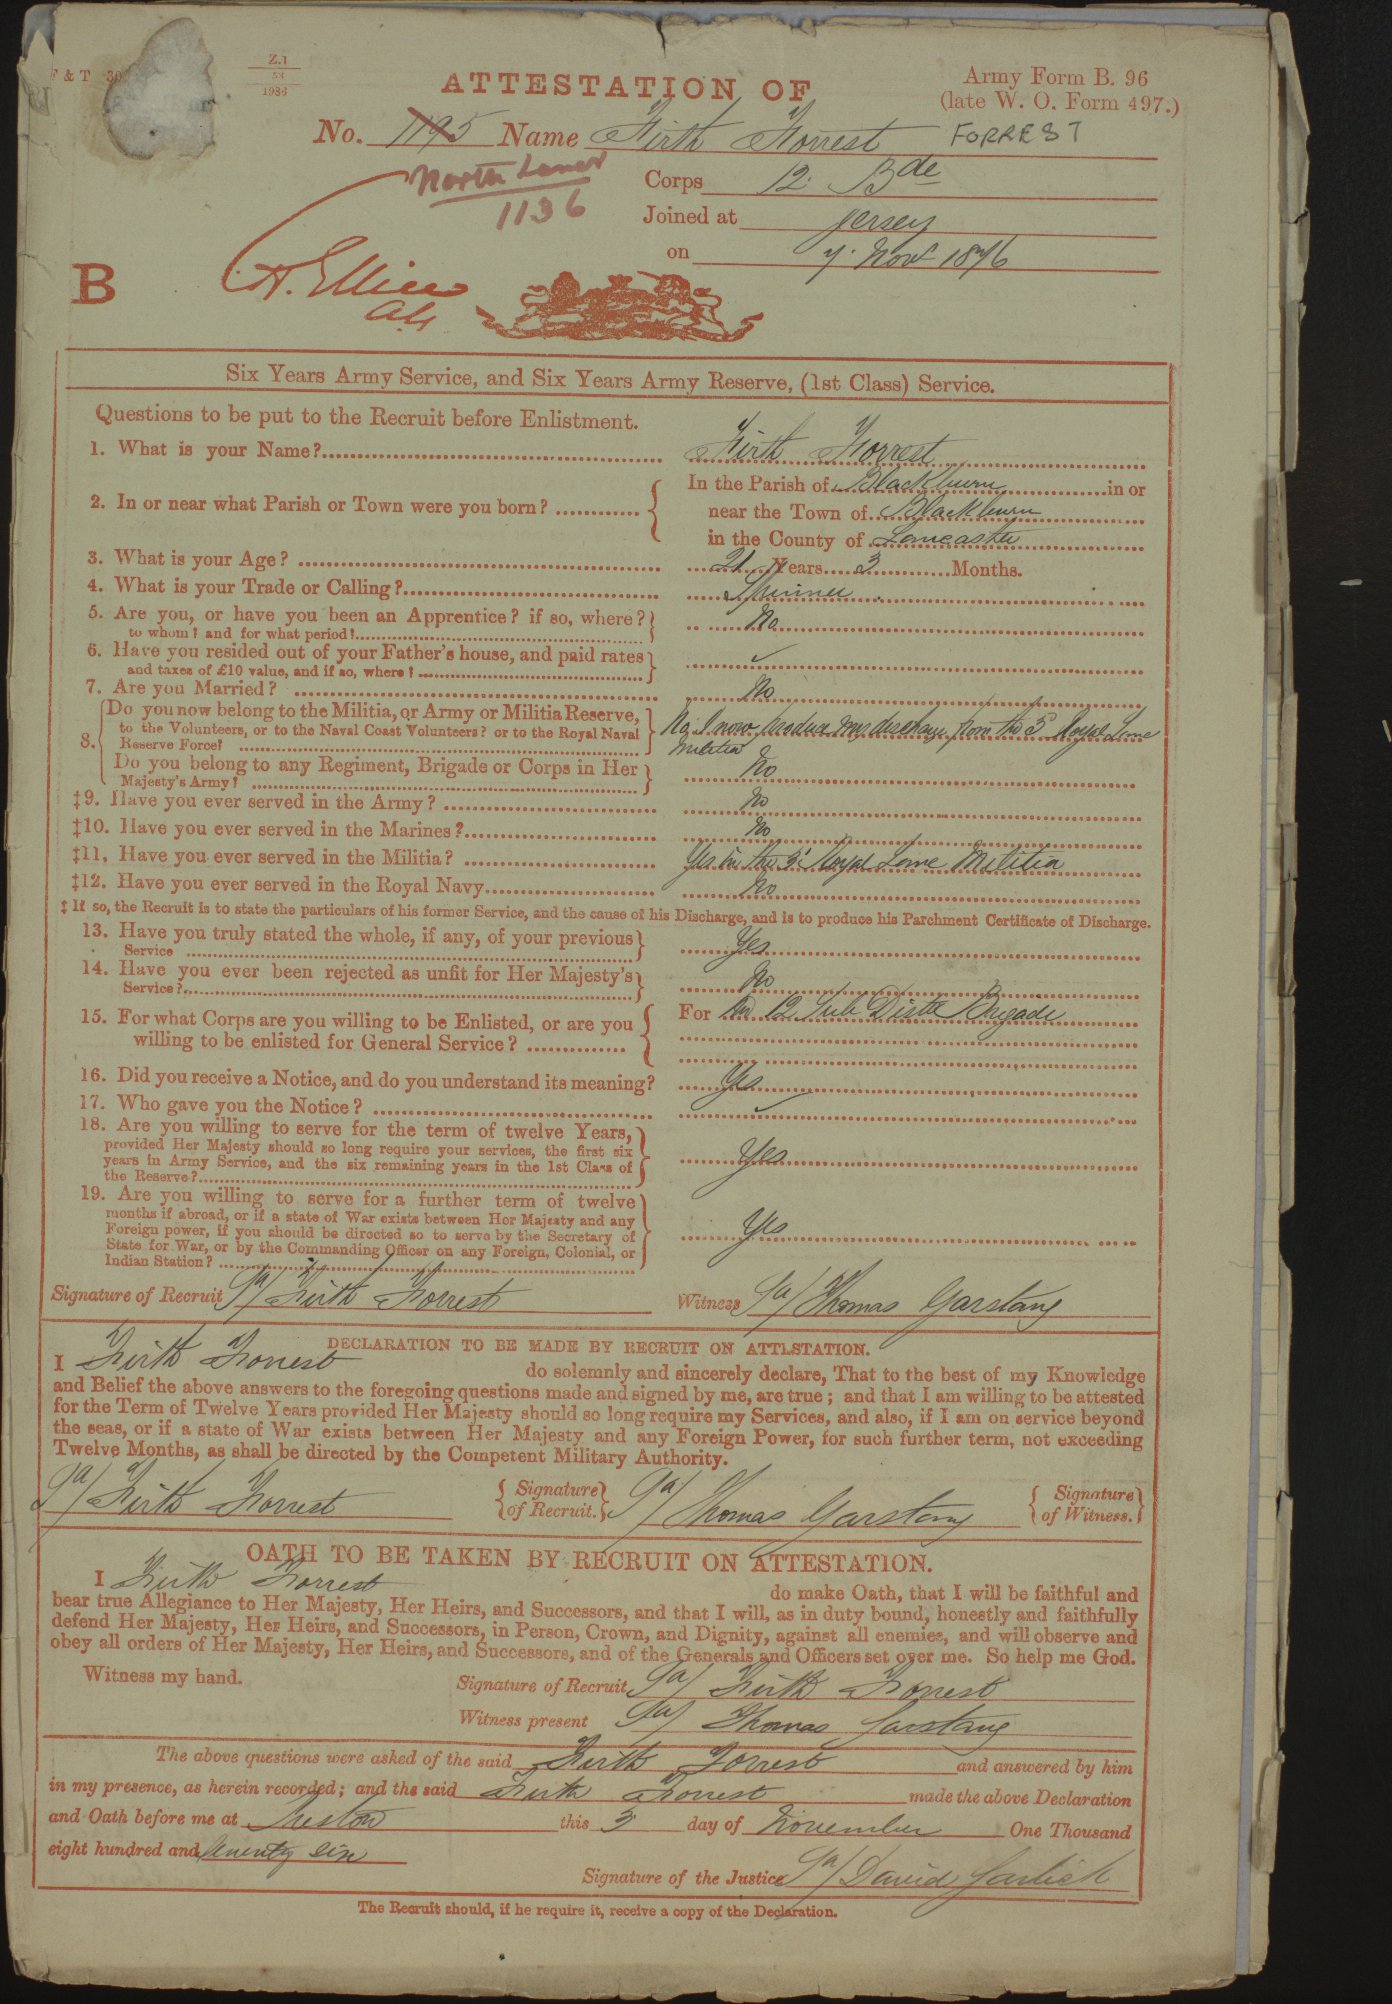 F & T 30
Z.1
53
1986
ATTESTATION OF
Army Form B. 96
(late W. O. Form 497.)
No. 1195 Name Firth Forrest FORREST
North Lancs
1136
Corps 12. Bde
Joined at Jersey
on 7. Novr 1876
B
A. Ellice
AG
Six Years Army Service, and Six Years Army Reserve, (1st Class) Service.
Questions to be put to the Recruit before Enlistment.
1. What is your Name? Firth Forrest
2. In or near what Parish or Town were you born? In the Parish of Blackburn in or
near the Town of Blackburn
in the County of Lancaster
3. What is your Age? 21 Years 3 Months.
4. What is your Trade or Calling? Spinner
5. Are you, or have you been an Apprentice? if so, where? No
to whom? and for what period?
6. Have you resided out of your Father's house, and paid rates
and taxes of £10 value, and if so, where?
7. Are you Married? No
8. Do you now belong to the Militia, or Army or Militia Reserve, No I now produce my discharge from the 3d Royal Lanc
to the Volunteers, or to the Naval Coast Volunteers? or to the Royal Naval Militia
Reserve Force?
Do you belong to any Regiment, Brigade or Corps in Her No
Majesty's Army?
‡9. Have you ever served in the Army? No
‡10. Have you ever served in the Marines? No
‡11. Have you ever served in the Militia? Yes in the 3d Royal Lanc Militia
‡12. Have you ever served in the Royal Navy No
‡ If so, the Recruit is to state the particulars of his former Service, and the cause of his Discharge, and is to produce his Parchment Certificate of Discharge.
13. Have you truly stated the whole, if any, of your previous Yes
Service
14. Have you ever been rejected as unfit for Her Majesty's No
Service?
15. For what Corps are you willing to be Enlisted, or are you For the 12 Sub Distt Brigade
willing to be enlisted for General Service?
16. Did you receive a Notice, and do you understand its meaning? Yes
17. Who gave you the Notice?
18. Are you willing to serve for the term of twelve Years,
provided Her Majesty should so long require your services, the first six Yes
years in Army Service, and the six remaining years in the 1st Class of
the Reserve?
19. Are you willing to serve for a further term of twelve
months if abroad, or if a state of War exists between Her Majesty and any
Foreign power, if you should be directed so to serve by the Secretary of Yes
State for War, or by the Commanding Officer on any Foreign, Colonial, or
Indian Station?
Signature of Recruit Sd/ Firth Forrest Witness Sd/ Thomas Garstang
DECLARATION TO BE MADE BY RECRUIT ON ATTESTATION.
I Firth Forrest do solemnly and sincerely declare, That to the best of my Knowledge
and Belief the above answers to the foregoing questions made and signed by me, are true; and that I am willing to be attested
for the Term of Twelve Years provided Her Majesty should so long require my Services, and also, if I am on service beyond
the seas, or if a state of War exists between Her Majesty and any Foreign Power, for such further term, not exceeding
Twelve Months, as shall be directed by the Competent Military Authority.
Sd/ Firth Forrest Signature of Recruit. Sd/ Thomas Garstang Signature of Witness.
OATH TO BE TAKEN BY RECRUIT ON ATTESTATION.
I Firth Forrest do make Oath, that I will be faithful and
bear true Allegiance to Her Majesty, Her Heirs, and Successors, and that I will, as in duty bound, honestly and faithfully
defend Her Majesty, Her Heirs, and Successors, in Person, Crown, and Dignity, against all enemies, and will observe and
obey all orders of Her Majesty, Her Heirs, and Successors, and of the Generals and Officers set over me. So help me God.
Witness my hand.
Signature of Recruit Sd/ Firth Forrest
Witness present Sd/ Thomas Garstang
The above questions were asked of the said Firth Forrest and answered by him
in my presence, as herein recorded; and the said Firth Forrest made the above Declaration
and Oath before me at Preston this 3 day of November One Thousand
eight hundred and Seventy Six
Signature of the Justice Sd/ David Garlick
The Recruit should, if he require it, receive a copy of the Declaration.